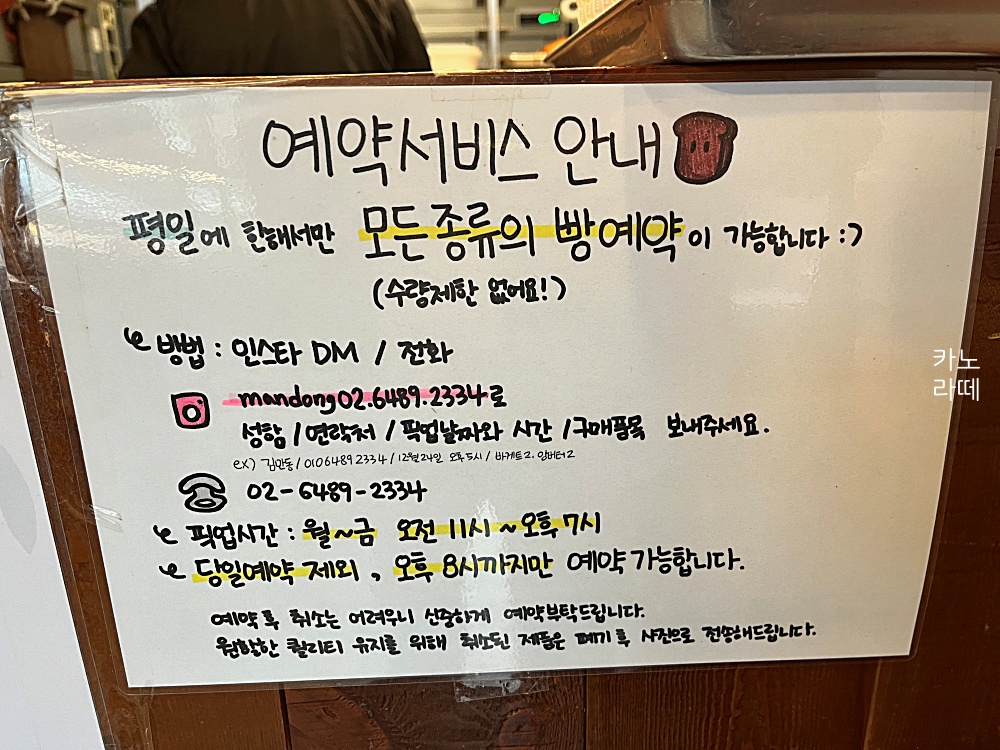 예약서비스 안내
평일에 한해서만 모든종류의 빵예약이 가능합니다 :)
(수량제한 없어요!)
방법 : 인스타 DM / 전화
mandong02.6489.2334로
성함 / 연락처 / 픽업날짜와 시간 / 구매품목 보내주세요.
ex) 김만동 / 01064892334 / 12월24일 오후5시 / 바게트2, 앙버터2
02-6489-2334
픽업시간 : 월~금 오전 11시 ~ 오후 7시
당일예약 제외, 오후 8시까지만 예약 가능합니다.
예약 후 취소는 어려우니 신중하게 예약부탁드립니다.
원활한 퀄리티 유지를 위해 취소된 제품은 폐기 후 사진으로 전송해드립니다.
카노
라떼